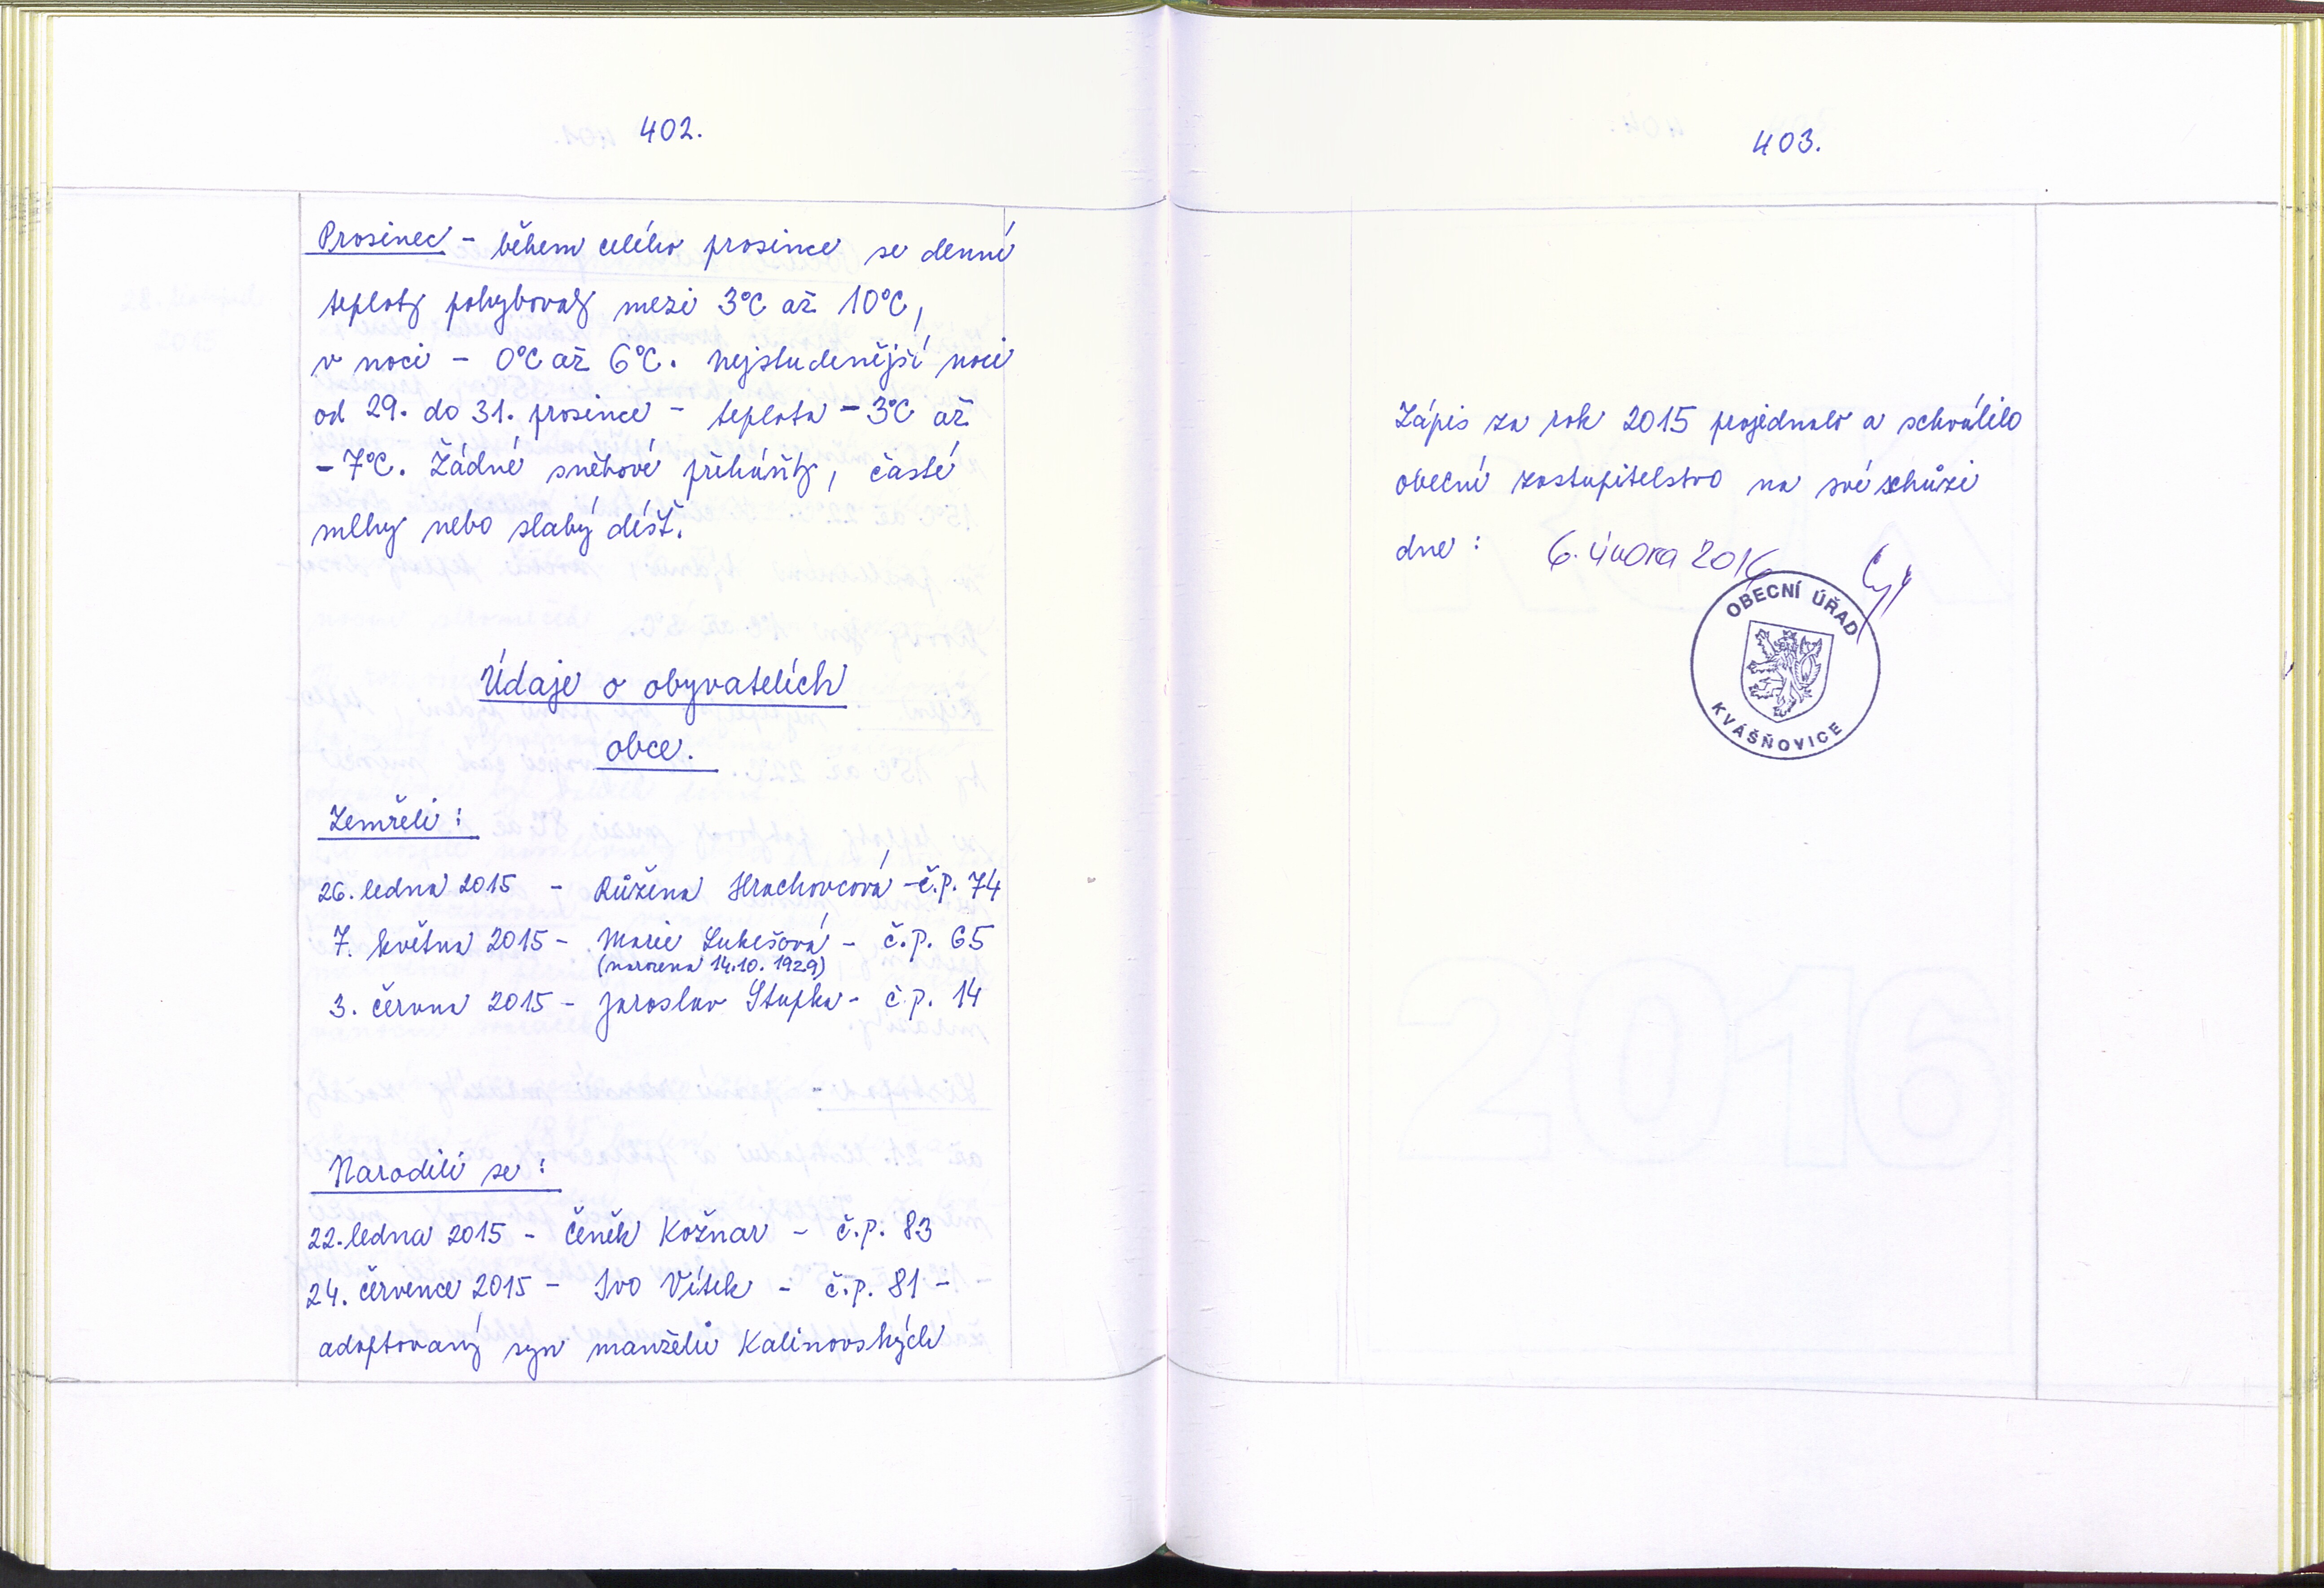 402.
Prosinec - během celého prosince se denní
teploty pohybovaly mezi 3°C až 10°C,
v noci - 0°C až 6°C. Nejstudenější noci
od 29. do 31. prosince - teplota -3°C až
-7°C. Žádné sněhové přeháňky, časté
mlhy nebo slabý déšť.
Údaje o obyvatelích
obce.
Zemřeli:
26. ledna 2015 - Růžena Hrachovcová - č.p. 74
7. května 2015 - Marie Lukešová - č.p. 65
(narozena 14.10. 1929)
3. června 2015 - Jaroslav Stupka - č.p. 14
Narodili se:
22. ledna 2015 - Čeněk Kožnar - č.p. 83
24. července 2015 - Ivo Vítek - č.p. 81 -
adoptovaný syn manželů Kalinovských
403.
Zápis za rok 2015 projednalo a schválilo
obecní zastupitelstvo na své schůzi
dne: 6. února 2016
OBECNÍ ÚŘAD
KVÁŠŇOVICE